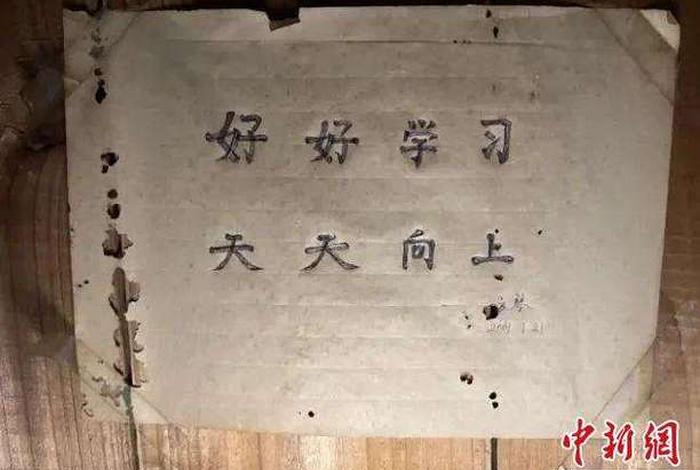 好好学习
天天向上
中新網